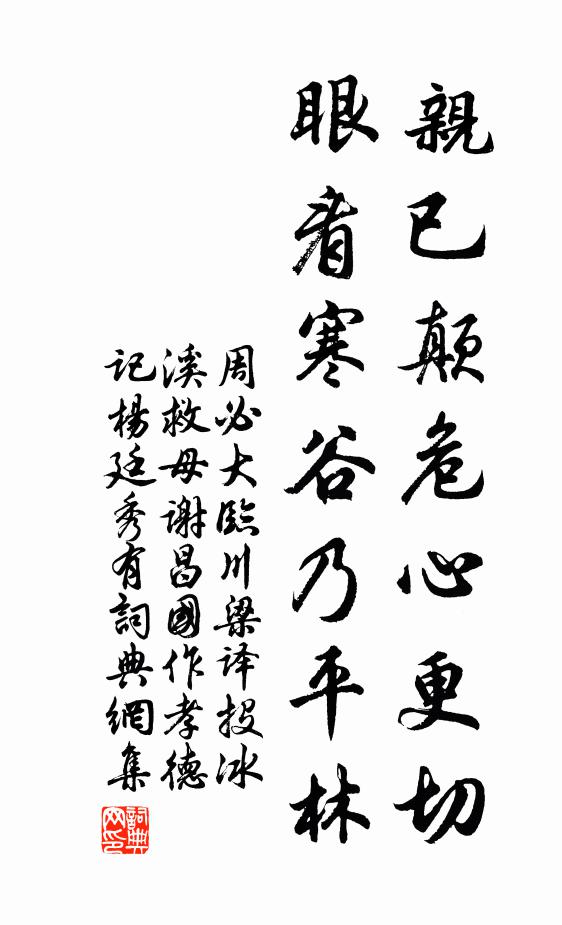 親已顛危心更切
眼看寒谷乃平林
周必大臨川梁译投冰
溪救母謝昌國作孝德
記楊廷秀有詞典網集
詞典网印